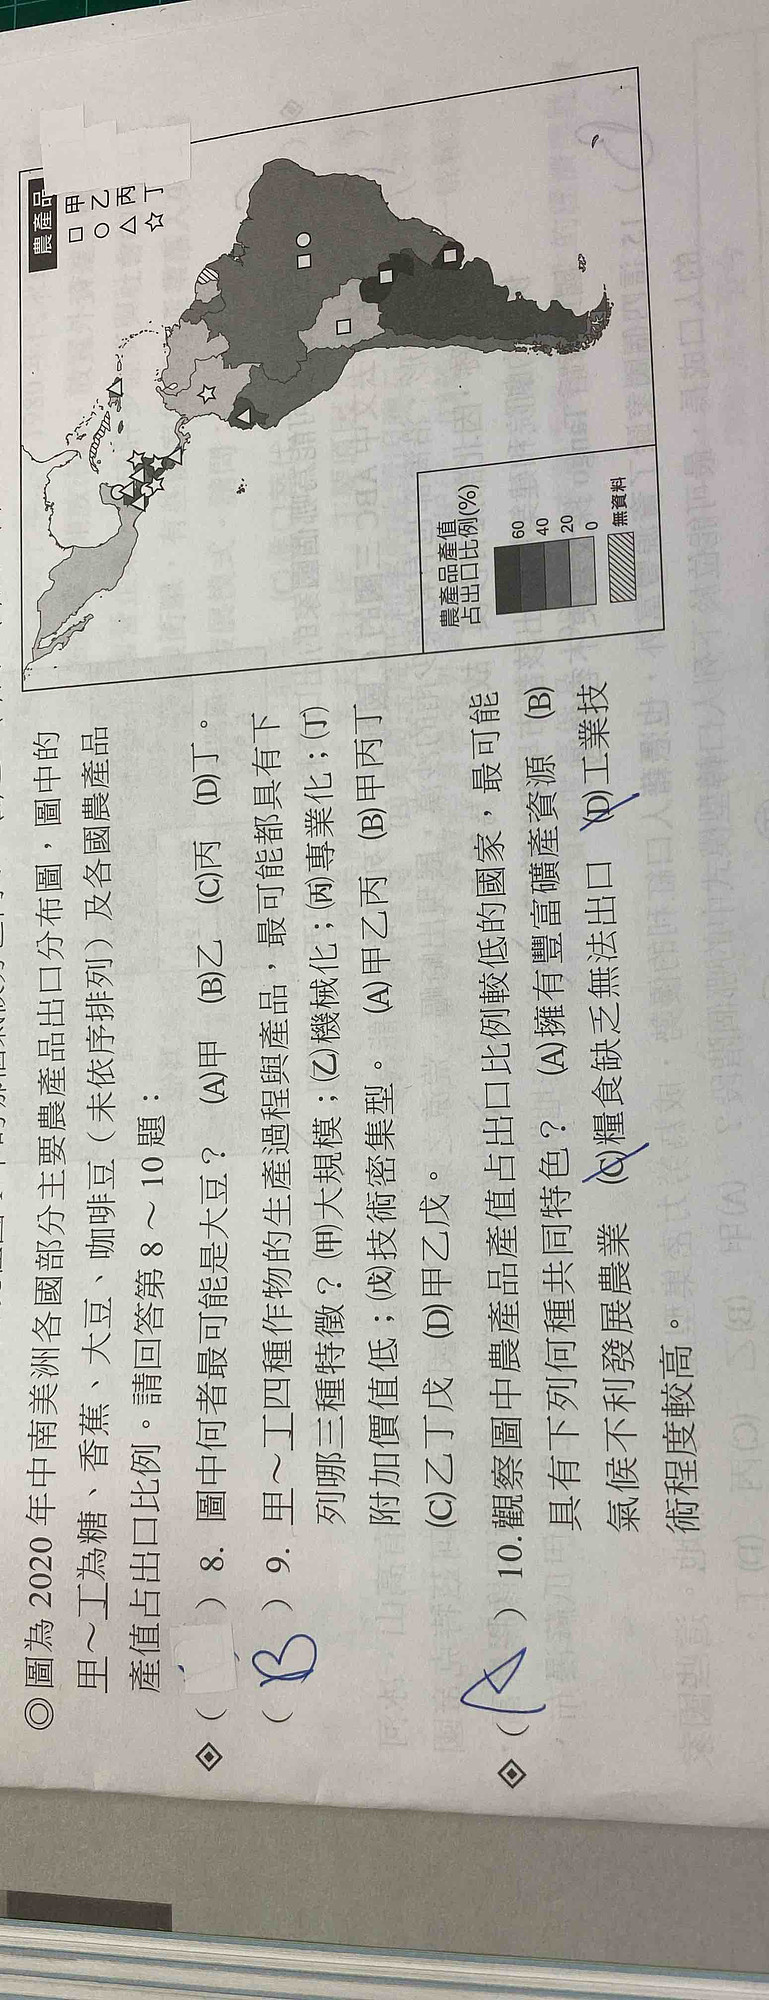 ◎圖為2020年中南美洲各國部分主要農產品出口分布圖，圖中的
甲～丁為糖、香蕉、大豆、咖啡豆（未依序排列）及各國農產品
產值占出口比例。請回答第8～10題：
◈（ ）8. 圖中何者最可能是大豆？ (A)甲 (B)乙 (C)丙 (D)丁。
（B）9. 甲～丁四種作物的生產過程與產品，最可能都具有下
列哪三種特徵？(甲)大規模；(乙)機械化；(丙)專業化；(丁)
附加價值低；(戊)技術密集型。 (A)甲乙丙 (B)甲丙丁
(C)乙丁戊 (D)甲乙戊。
◈（A）10.觀察圖中農產品產值占出口比例較低的國家，最可能
具有下列何種共同特色？ (A)擁有豐富礦產資源 (B)
氣候不利發展農業 (C)糧食缺乏無法出口 (D)工業技
術程度較高。
農產品
□ 甲
○ 乙
△ 丙
☆ 丁
農產品產值
占出口比例(%)
60
40
20
0
無資料